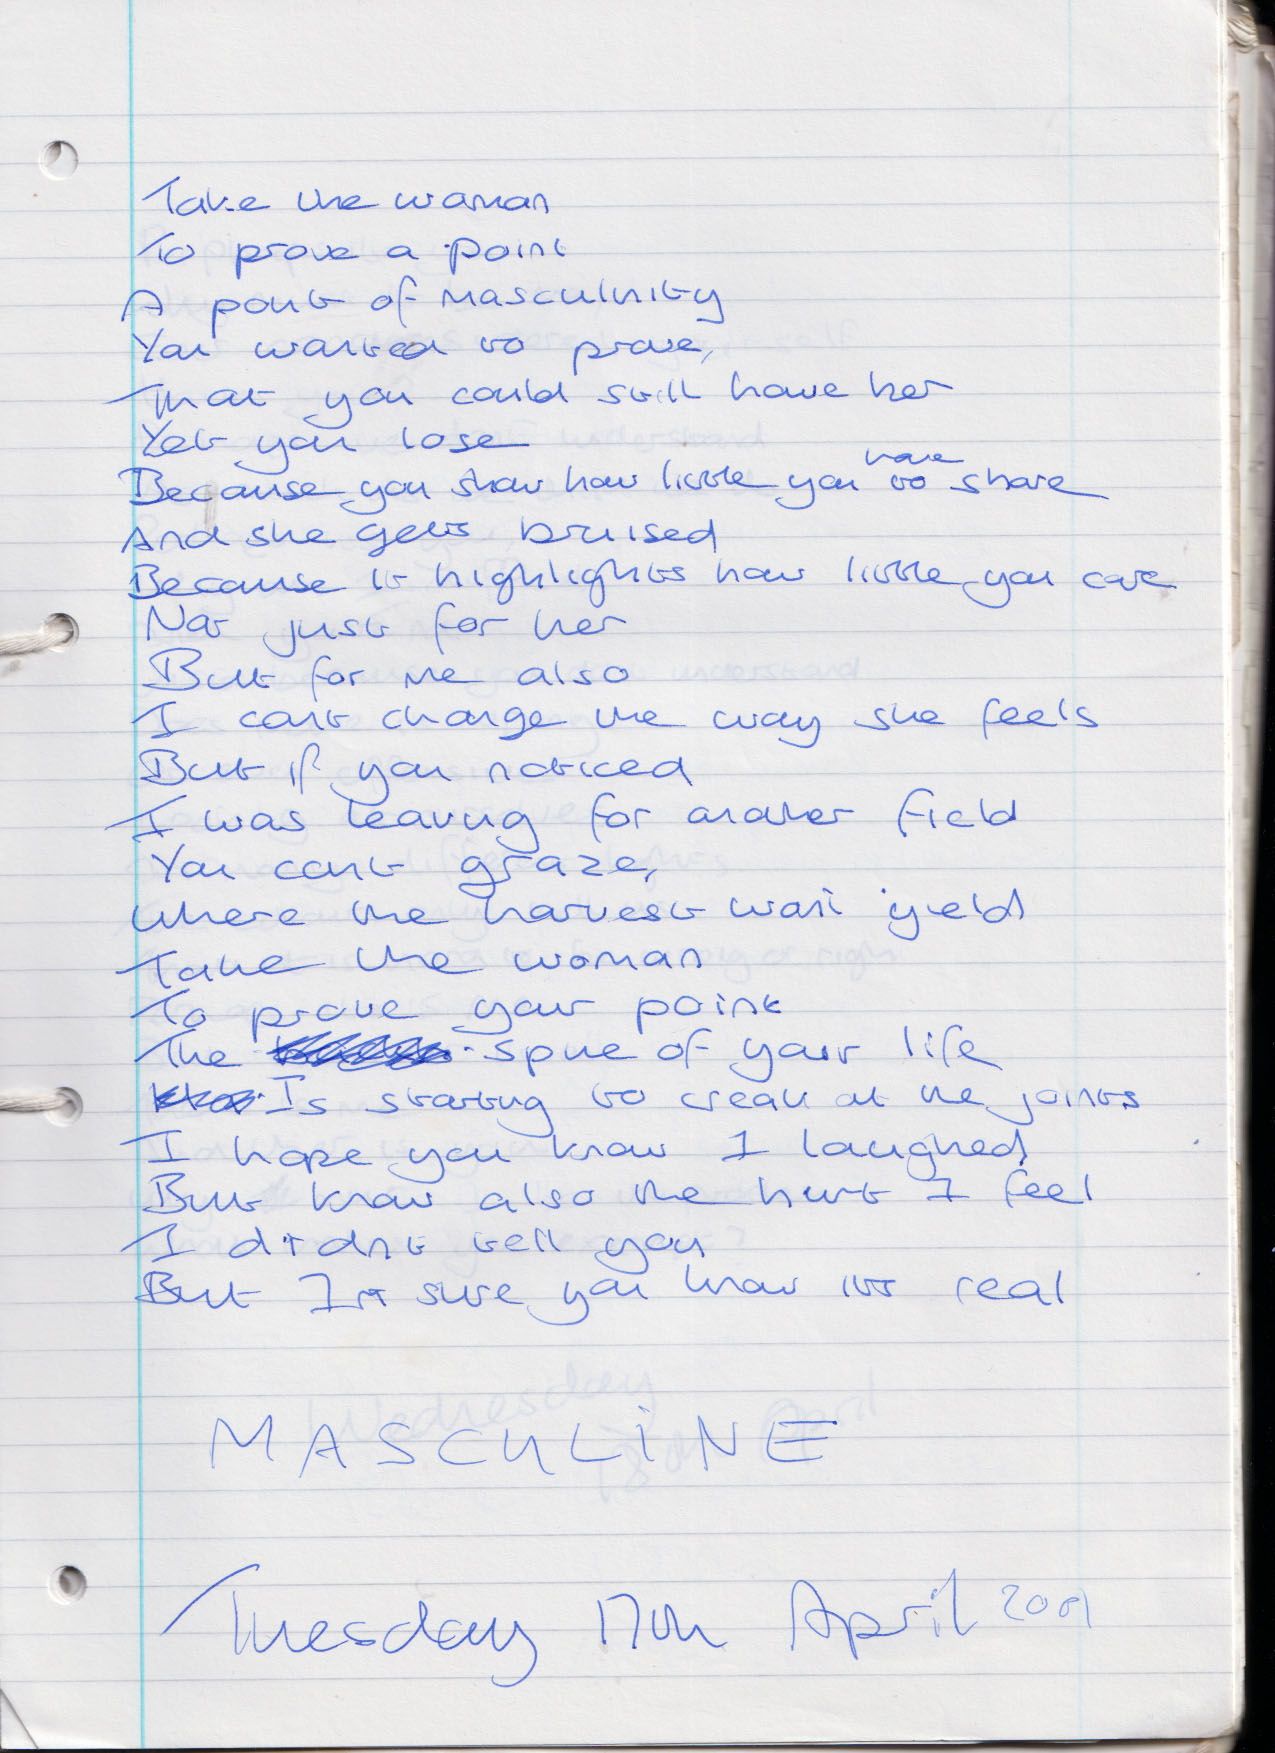 Take the woman
To prove a point
A point of masculinity
You wanted to prove,
That you could still have her
Yet you lose
Because you show how little you have to share
And she gets bruised
Because it highlights how little you care
Not just for her
But for me also
I cant change the way she feels
But if you noticed
I was leaving for another field
You cant graze,
Where the harvest wont yield
Take the woman
To prove your point
The spine of your life
Is starting to creak at the joints
I hope you know I laughed
But know also the hurt I feel
I didnt tell you
But Im sure you know its real
MASCULINE
Tuesday 17th April 2001